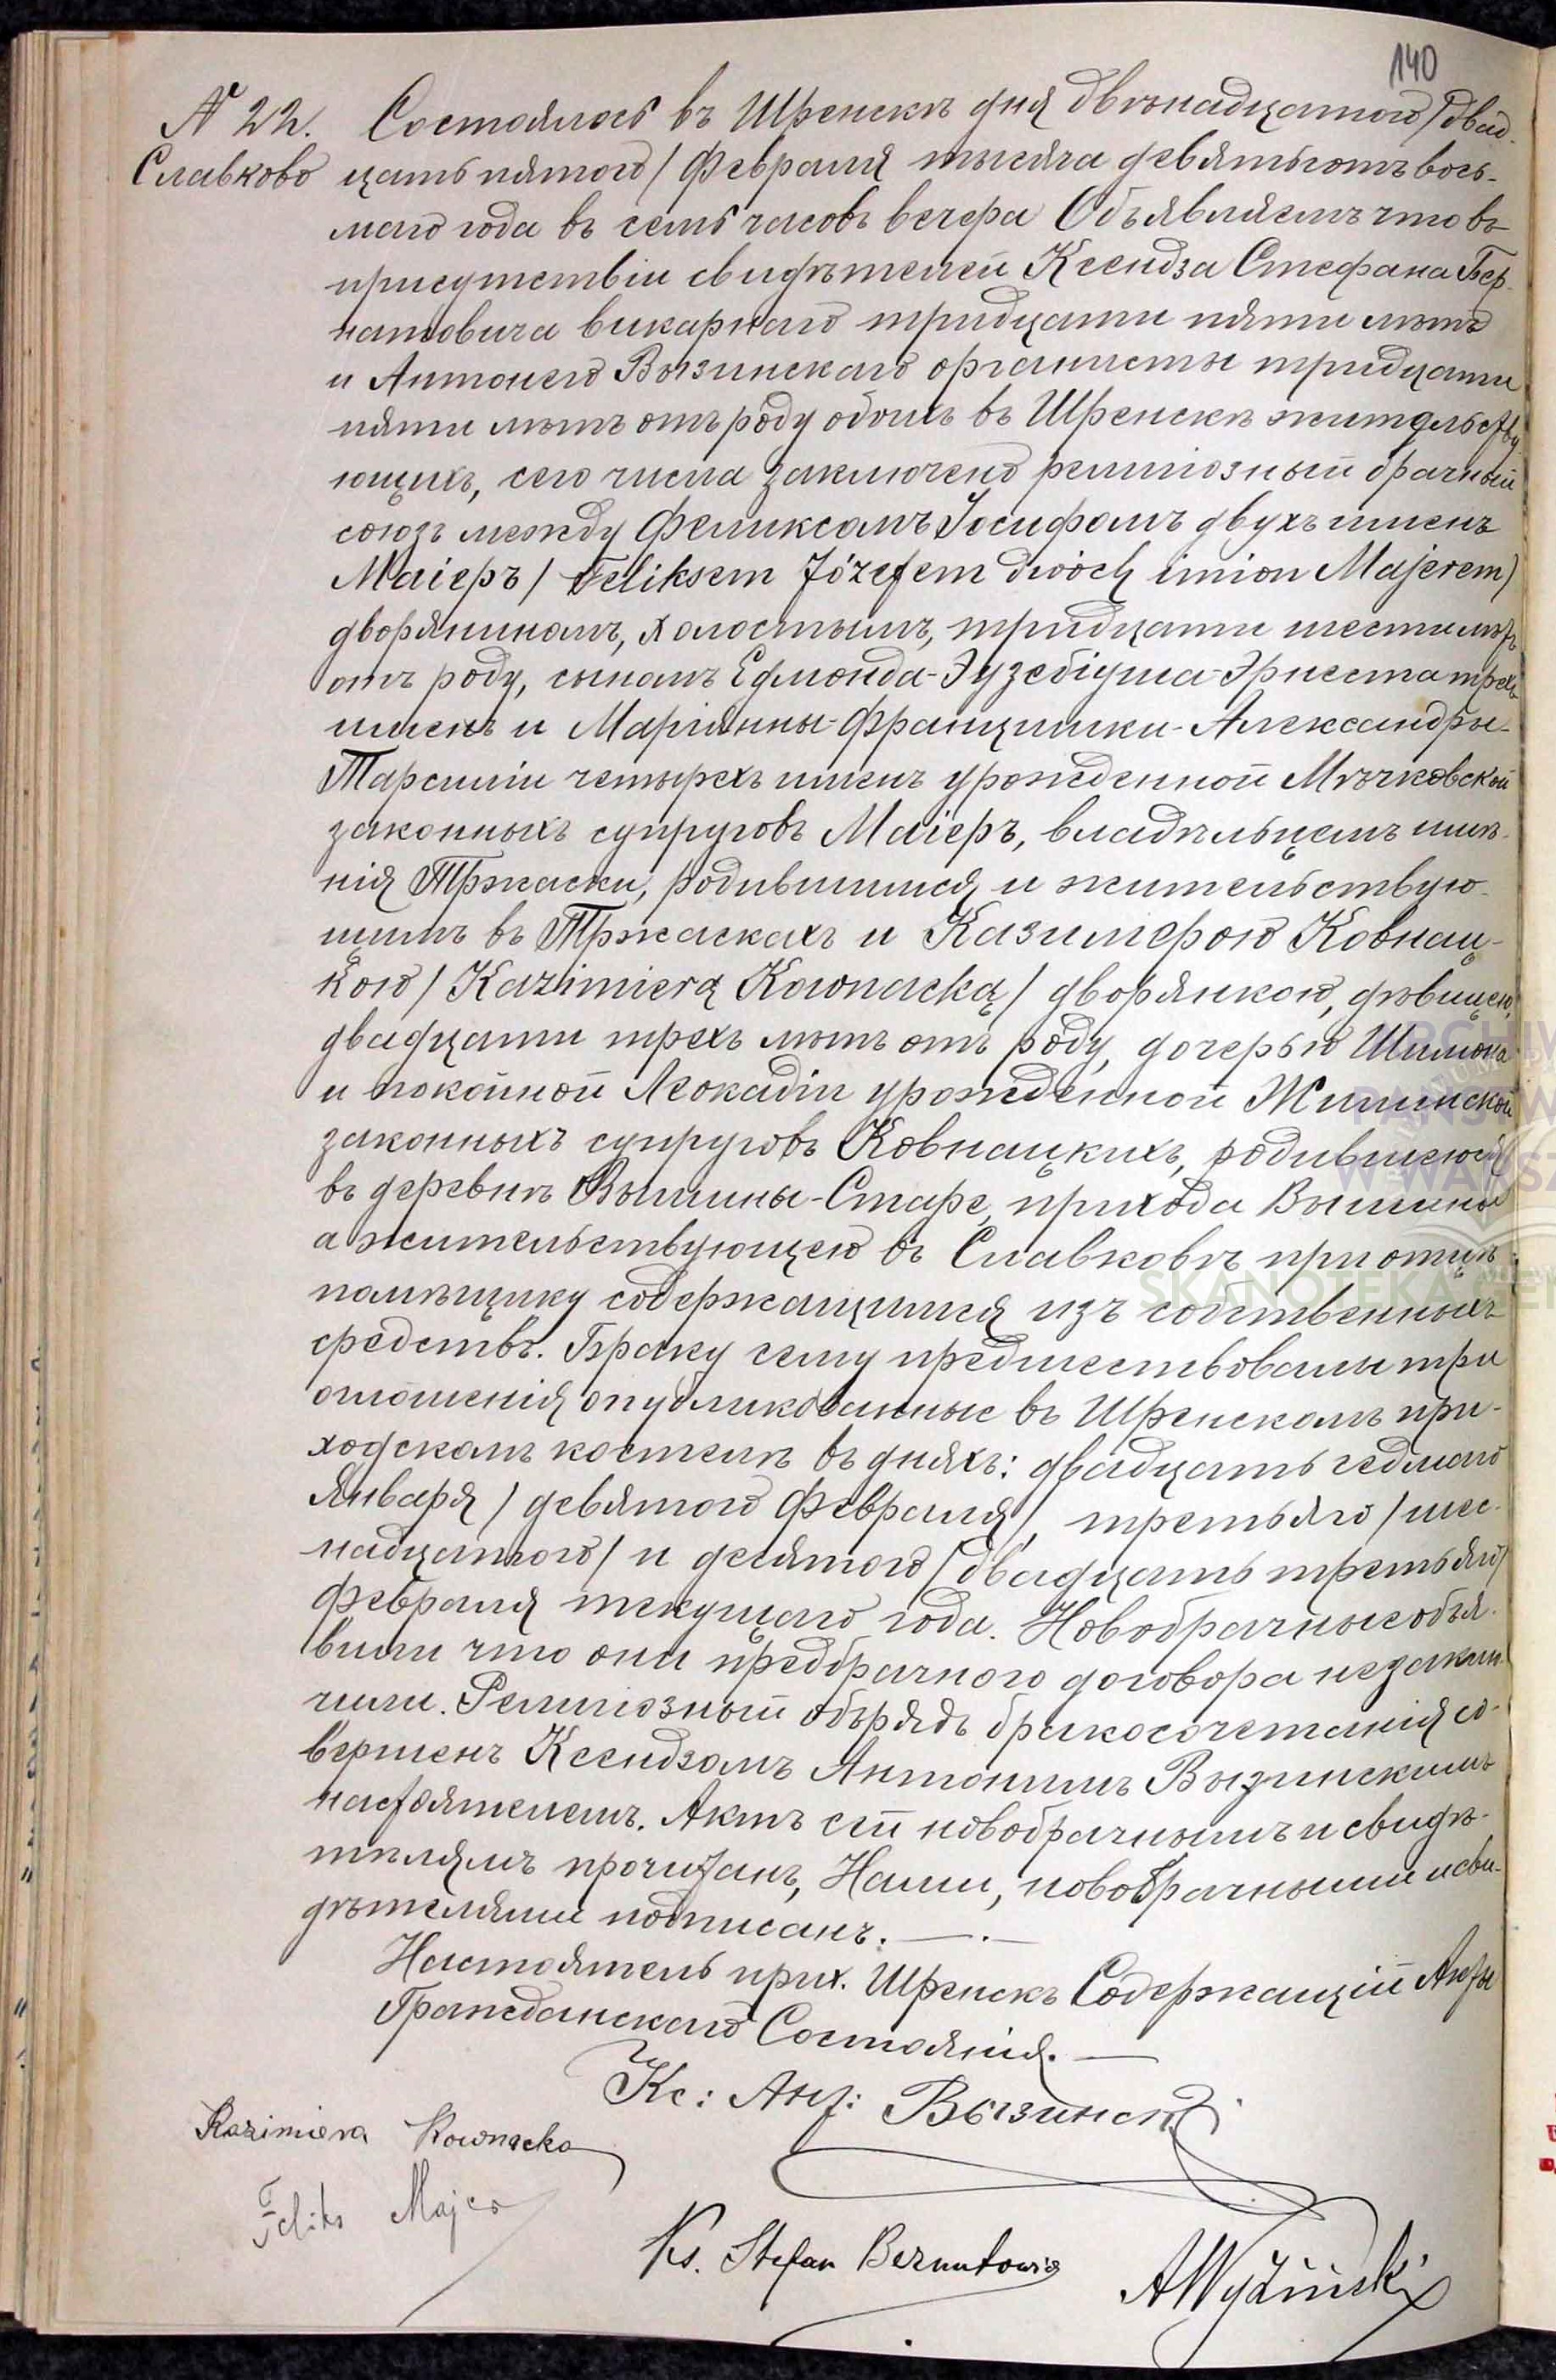 140
№ 22. Состоялось въ Шренскѣ дня двѣнадцатого /двад-
Славково цать пятого/ Февраля тысяча девятьсотъ вось-
маго года въ семь часовъ вечера Объявляемъ что въ
присутствіи свидѣтелей Ксендза Стефана Бер-
натовича викарнаго тридцати пяти лѣтъ
и Антонего Визинскаго органисты тридцати
пяти лѣтъ отъ роду обоихъ въ Шренскѣ жительству-
ющихъ, сего числа заключенъ религіозный брачный
союзъ между Феликсомъ Іосифомъ двухъ именъ
Маіеръ / Feliksem Józefem dwóch imion Majerem)
дворяниномъ, холостымъ, тридцати шести лѣтъ
отъ роду, сыномъ Едмонда-Эузебіуша-Эрнеста трехъ
именъ и Маріанны-Францишки-Александры-
Тарсиліи четырехъ именъ урожденной Мѣчковской
законныхъ супруговъ Маіеръ, владѣльцемъ имѣ-
нія Тржаски, родившимся и жительствую-
щимъ въ Тржаскахъ и Казимерою Ковнац-
кою / Kazimierą Kownacką / дворянкою, дѣвицею,
двадцати трехъ лѣтъ отъ роду, дочерью Шимона
и покойной Леокадіи урожденной Жилинской
законныхъ супруговъ Ковнацкихъ, родившеюся
въ деревнѣ Вышины-Старе, прихода Вышины
а жительствующею въ Славковѣ при отцѣ
помѣщику содержащимся изъ собственныхъ
средствъ. Браку сему предшествовали три
оглашенія опубликованные въ Шренскомъ при-
ходскомъ костелѣ въ дняхъ: двадцать седмаго
Января / девятого Февраля/, третьяго / шес-
надцатого/ и десятого /двадцать третьяго/
Февраля текущаго года. Новобрачные объя-
вили что они предбрачного договора незаклю-
чили. Религіозный обърядъ бракосочетанія со-
вершенъ Ксендзомъ Антонимъ Вызинскимъ
настоятелемъ. Актъ сей новобрачнымъ и свидѣ-
тѣлямъ прочитанъ, Нами, новобрачными и сви-
дѣтелями подписанъ.
Настоятель прих. Шренскъ Содержащій Акты
Гражданскаго Состоянія.
Кс: Ант: Вызинскі
Kazimiera Kownacka
Feliks Majer
Ks. Stefan Bernatowicz
A Wyziński
ARCHIWUM
PAŃSTWOWE
W WARSZ
SKANOTEKA GEN